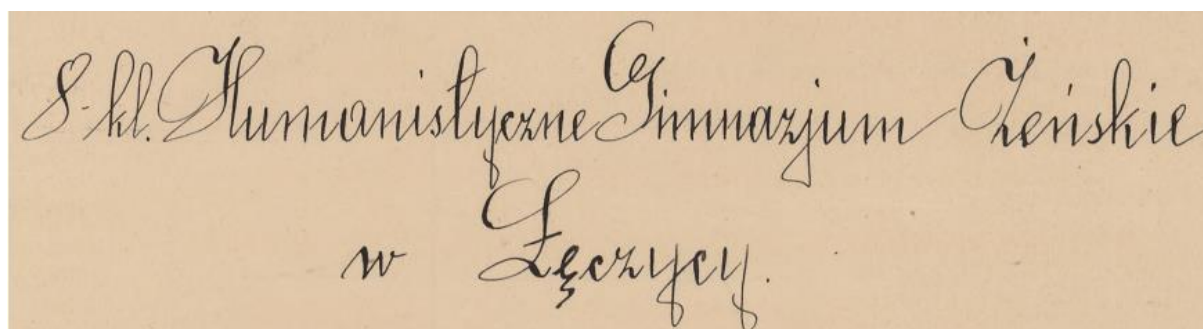 8-kl. Humanistyczne Gimnazjum Żeńskie
w Łęczycy.